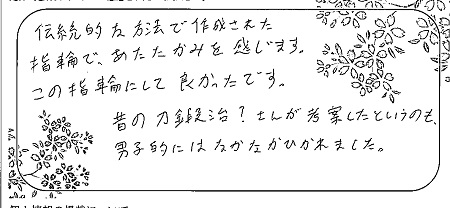 伝統的な方法で作成された
指輪で、あたたかみを感じます。
この指輪にして良かったです。
昔の刀鍛治?さんが考案したというのも、
男子的にはなかなかひかれました。